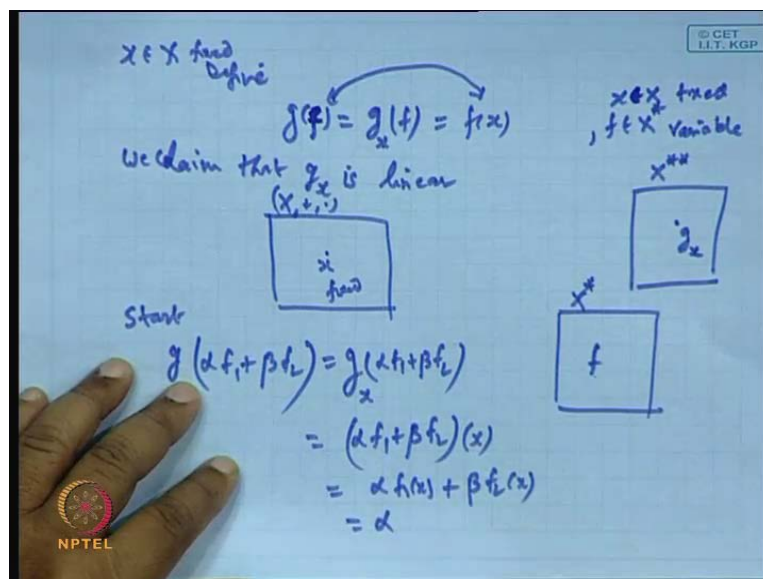 © CET
I.I.T. KGP
x ∈ X fixed
Define
g(f) = g_x(f) = f(x)
x ∈ X fixed
, f ∈ X* variable
We claim that g_x is linear
(X, +, ·)
x
fixed
X**
g_x
X*
f
Start
g(αf₁ + βf₂) = g_x(αf₁ + βf₂)
= (αf₁ + βf₂)(x)
= αf₁(x) + βf₂(x)
= α
NPTEL